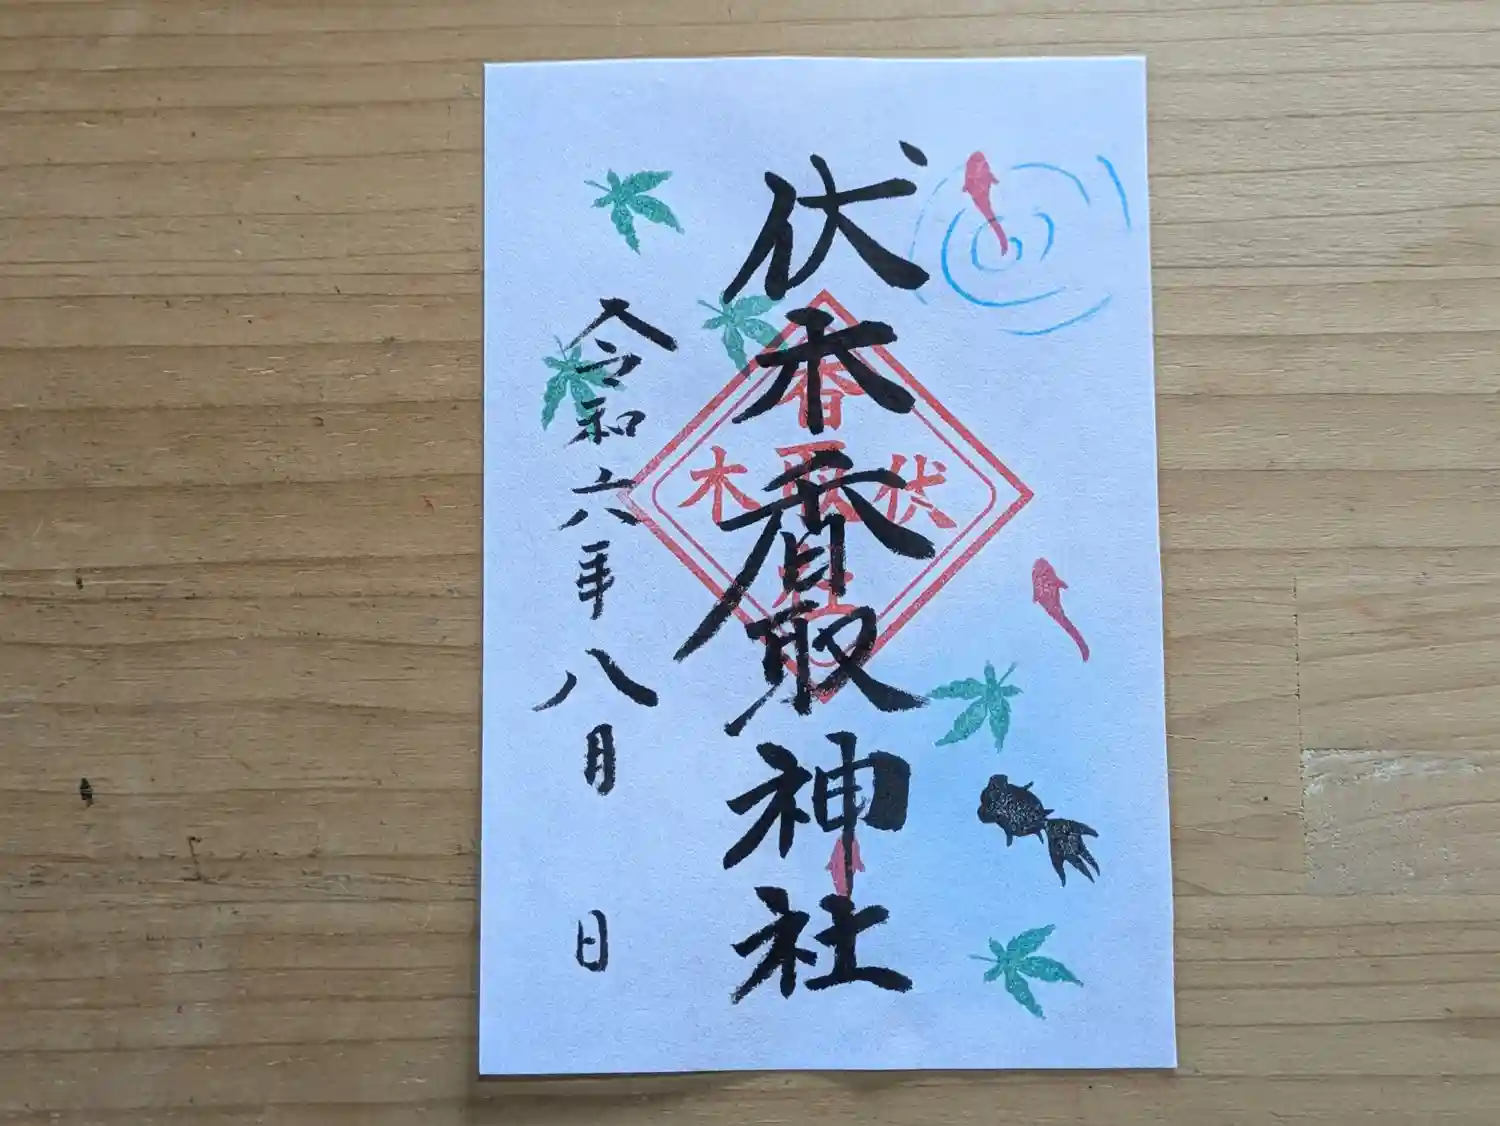 伏木香取神社
香
伏取木
社
令和六年八月 日